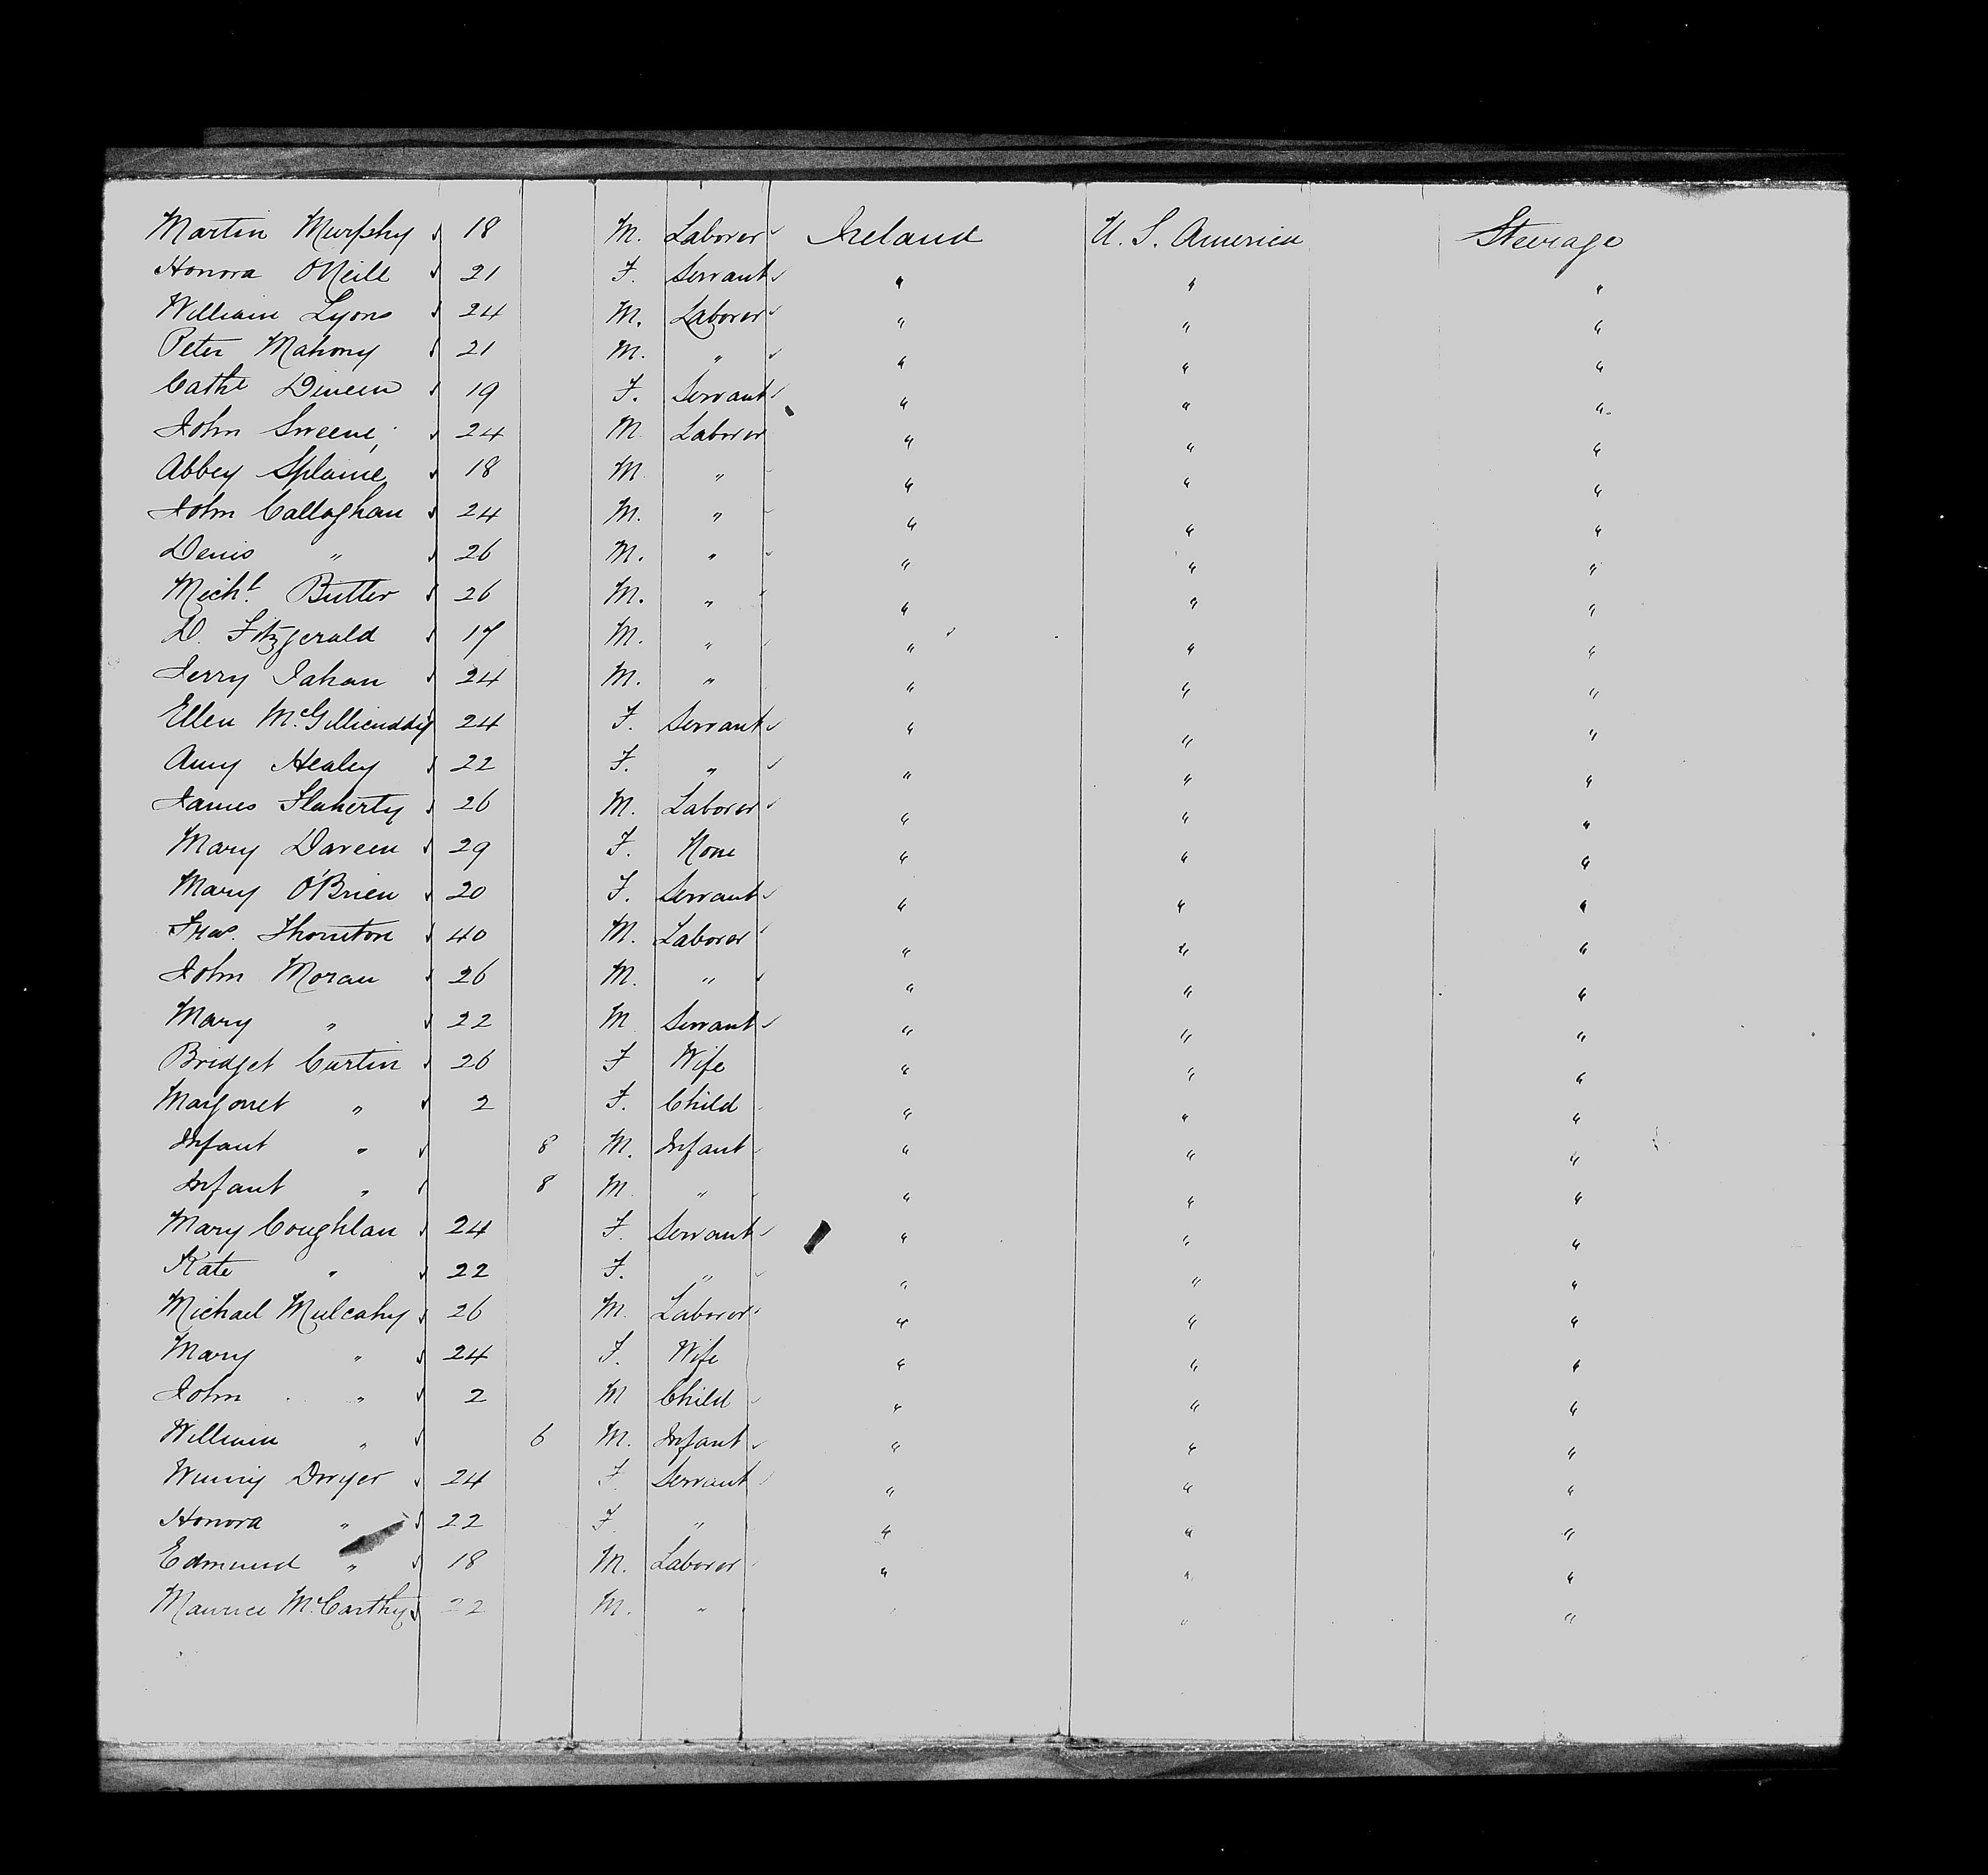 Martin Murphy 18 M. Laborer Ireland U. S. America Steerage
Honora O'Neill 21 F. Servant " " "
William Lyons 24 M. Laborer " " "
Peter Mahony 21 M. " " " "
Cathe Dineen 19 F. Servant " " "
John Sweeney 24 M Laborer " " "
Abbey Splaine 18 M " " " "
John Callaghan 24 M. " " " "
Denis " 26 M. " " " "
Michl. Butler 26 M. " " " "
D. Fitzgerald 17 M. " " " "
Jerry 24 M. " " " "
Ellen McGillicuddy 24 F. Servant " " "
Amy Healey 22 F. " " " "
James Flaherty 26 M. Laborer " " "
Mary Daveen 29 F. None " " "
Mary O'Brien 20 F. Servant " " "
Thornton 40 M. Laborer " " "
John Moran 26 M. " " " "
Mary " 22 M Servant " " "
Bridget Curtin 26 F Wife " " "
Margaret " 2 F. Child " " "
Infant " 8 M. Infant " " "
Infant " 8 M " " " "
Mary Coughlan 24 F. Servant " " "
Kate " 22 F. " " " "
Michael Mulcahy 26 M. Laborer " " "
Mary " 24 F. Wife " " "
John " 2 M Child " " "
William " 6 M. Infant " " "
Winny Dwyer 24 F. Servant " " "
Honora " 22 F. " " " "
Edmund " 18 M. Laborer " " "
Maurice McCarthy 22 M. " " " "